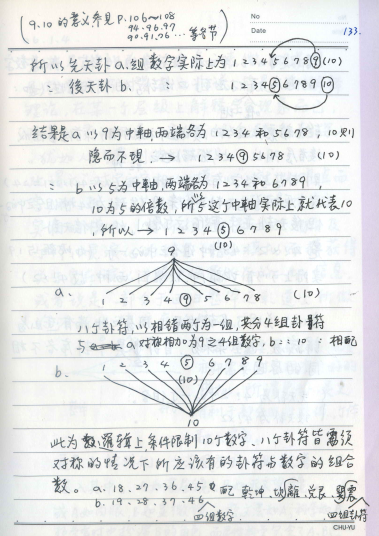 (9.10的意义参见P.106~108
94-96.97
90.91.76…等各节)
No
Date 133.
所以先天卦a.组数字实际上为 1 2 3 4 5 6 7 8 ⑨ (10)
∴ 後天卦b. ∴ 1 2 3 4 ⑤ 6 7 8 9 ⑩
结果是a以9为中轴两端各为1234和5678,10则
隐而不现.→ 1 2 3 4 ⑨ 5 6 7 8 (10)
∴ b以5为中轴,两端为1234和6789,
10为5的倍数,所以5这个中轴实际上就代表10
,所以→ 1 2 3 4 ⑤ 6 7 8 9
(10)
9
a. 1 2 3 4 ⑨ 5 6 7 8 (10)
八个卦符,以相错两个为一组,共分4组卦符
与a对称相加为9之4组数字,b∴10∴相配
b. 1 2 3 4 ⑤ 6 7 8 9
(10)
10
此为数逻辑上条件限制10个数字、八个卦符皆需从
对称的情况下所应该有的卦符与数字的组合
数。 a.18.27.36.45 配 乾坤.坎離.艮.巽震
b.19.28.37.46
四组数字 四组卦符
CHU-YU